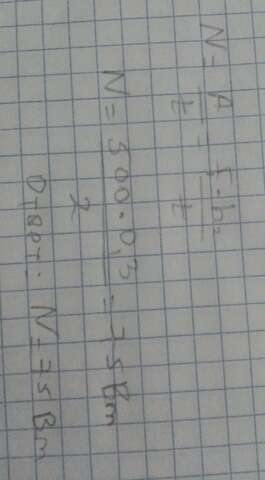 N = A/t = F·h/t
N = 500·0,3/2 = 75 Вт
Ответ: N = 75 Вт